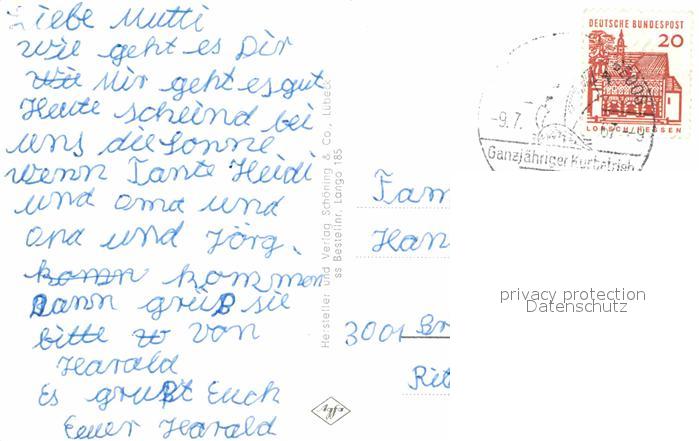 Liebe Mutti
Wie geht es Dir
Wie Mir geht es gut
Heute scheind bei
uns die Sonne
wenn Tante Heidi
und oma und
opa und Jörg.
komm kommen
Dann grüß sie
bitte von
Harald
Es grußt Euch
Euer Harald
Hersteller und Verlag Schöning & Co., Lübeck
ss Bestellnr. Lango 185
Agfa
DEUTSCHE BUNDESPOST
20
LORSCH/HESSEN
-9.7.
67--9
Ganzjähriger Kurbetrieb
Fam
Han
3001 Br
Rit
privacy protection
Datenschutz